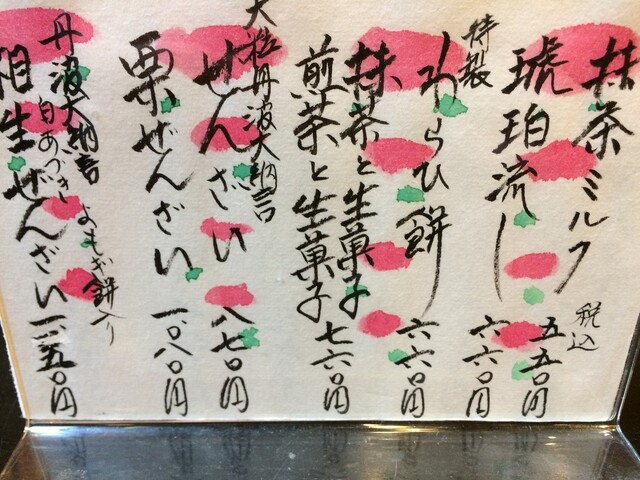 抹茶ミルク 税込 五五〇円
琥珀流し 六六〇円
特製 わらひ餅 六六〇円
抹茶と生菓子
煎茶と生菓子 七六〇円
大粒丹波大納言
ぜんざい 八七〇円
栗ぜんざい 一、〇八〇円
丹波大納言 白あづき よもぎ餅入り
相生ぜんざい 一、一五〇円